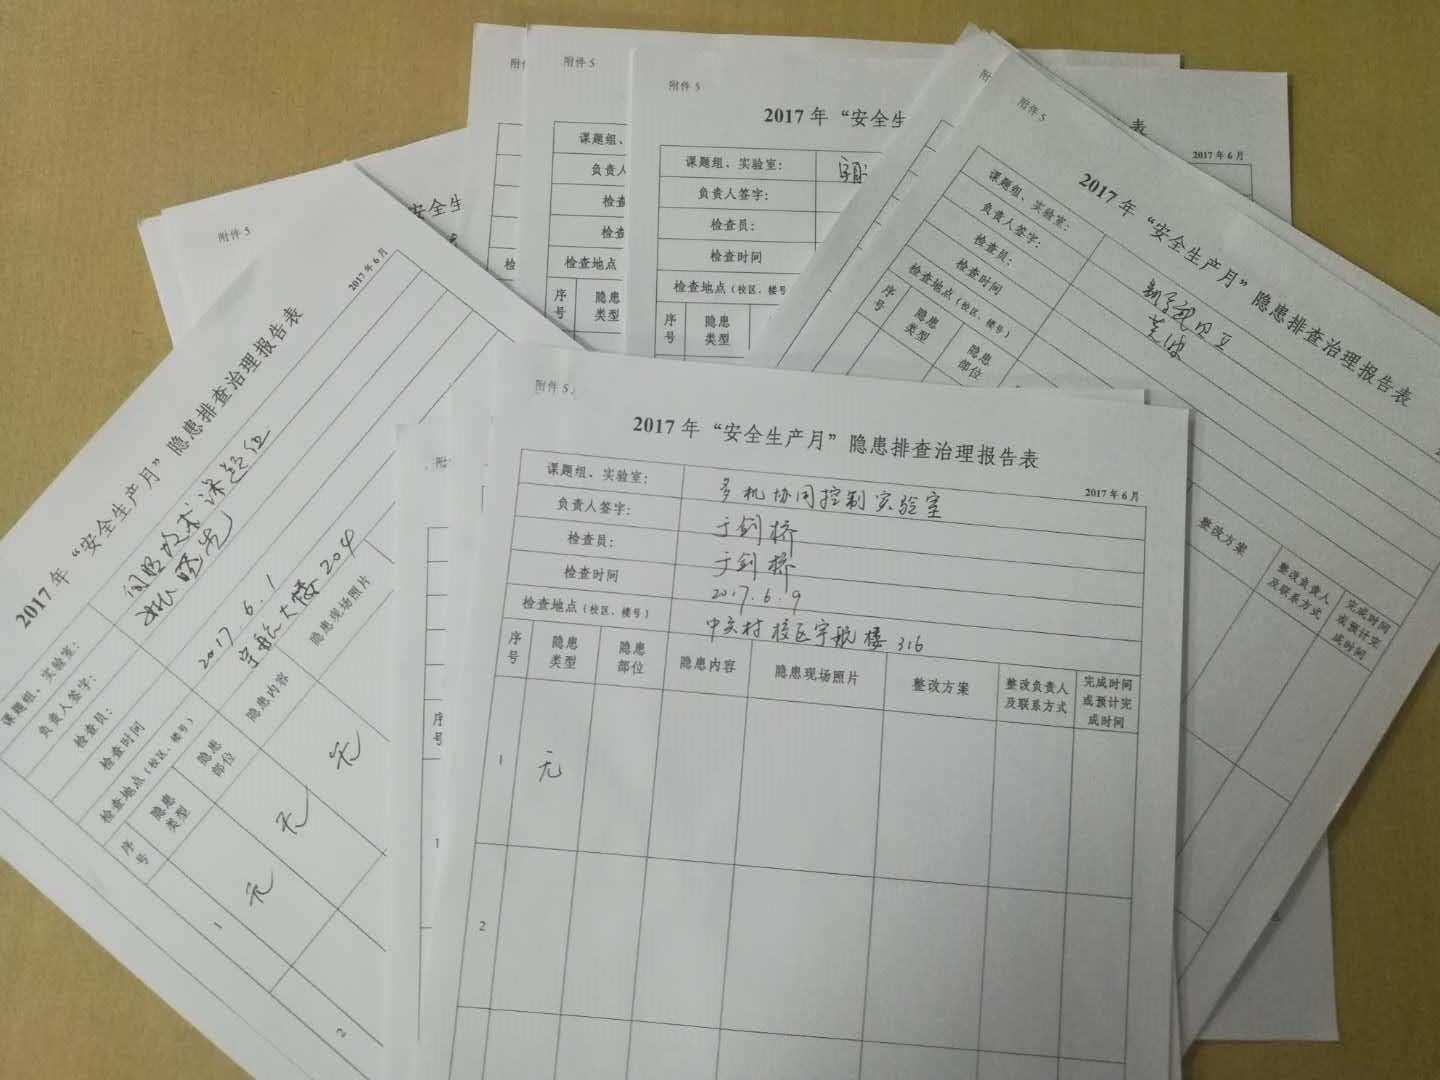 附件 5
2017 年 “安全生产月” 隐患排查治理报告表
2017 年 6 月
课题组、实验室： 多机协同控制实验室
负责人签字： 于剑桥
检查员： 于剑桥
检查时间 2017.6.9
检查地点（校区、楼号） 中关村校区宇航楼 316
序号 隐患类型 隐患部位 隐患内容 隐患现场照片 整改方案 整改负责人及联系方式 完成时间或预计完成时间
1 无
2
附件 5
2017 年 “安全生产月” 隐患排查治理报告表
2017 年 6 月
课题组、实验室：
负责人签字：
检查员：
检查时间 2017.6.1
检查地点（校区、楼号） 宇航大楼 204
序号 隐患类型 隐患部位 隐患内容 隐患现场照片
1 无 无 无
2
安全生
附件
检
附件 5
课题组、
负责人
检查
检查
检查地点
序号 隐患类型
附件 5
2017 年 “安全生
课题组、实验室：
负责人签字：
检查员：
检查时间
检查地点（校区、楼号
序号 隐患类型
表
2017 年 6 月
附
附件 5
2017 年 “安全生产月” 隐患排查治理报告表
课题组、实验室：
负责人签字：
检查员：
检查时间
检查地点（校区、楼号）
序号 隐患类型 隐患部位
整改方案 整改负责人及联系方式 完成时间或预计完成时间
附
序号
1